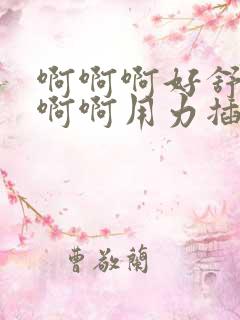 啊啊啊好舒
啊啊用力插
曹敬蘭